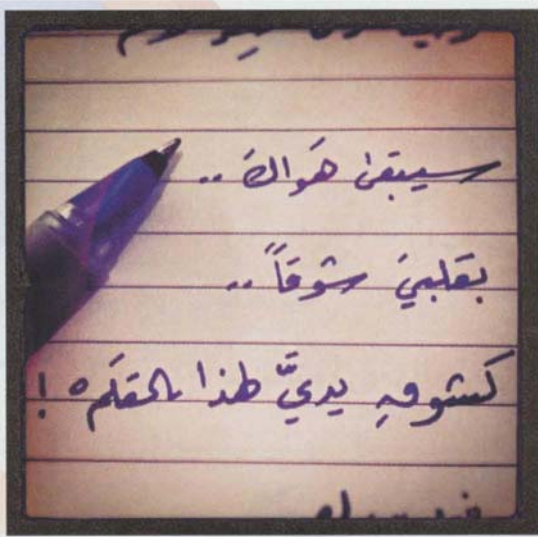 سيبقىٰ هَواكَ ..
بقلبيَ شوقاً ..
كشوقِ يديَّ لهذا القلَمْ !